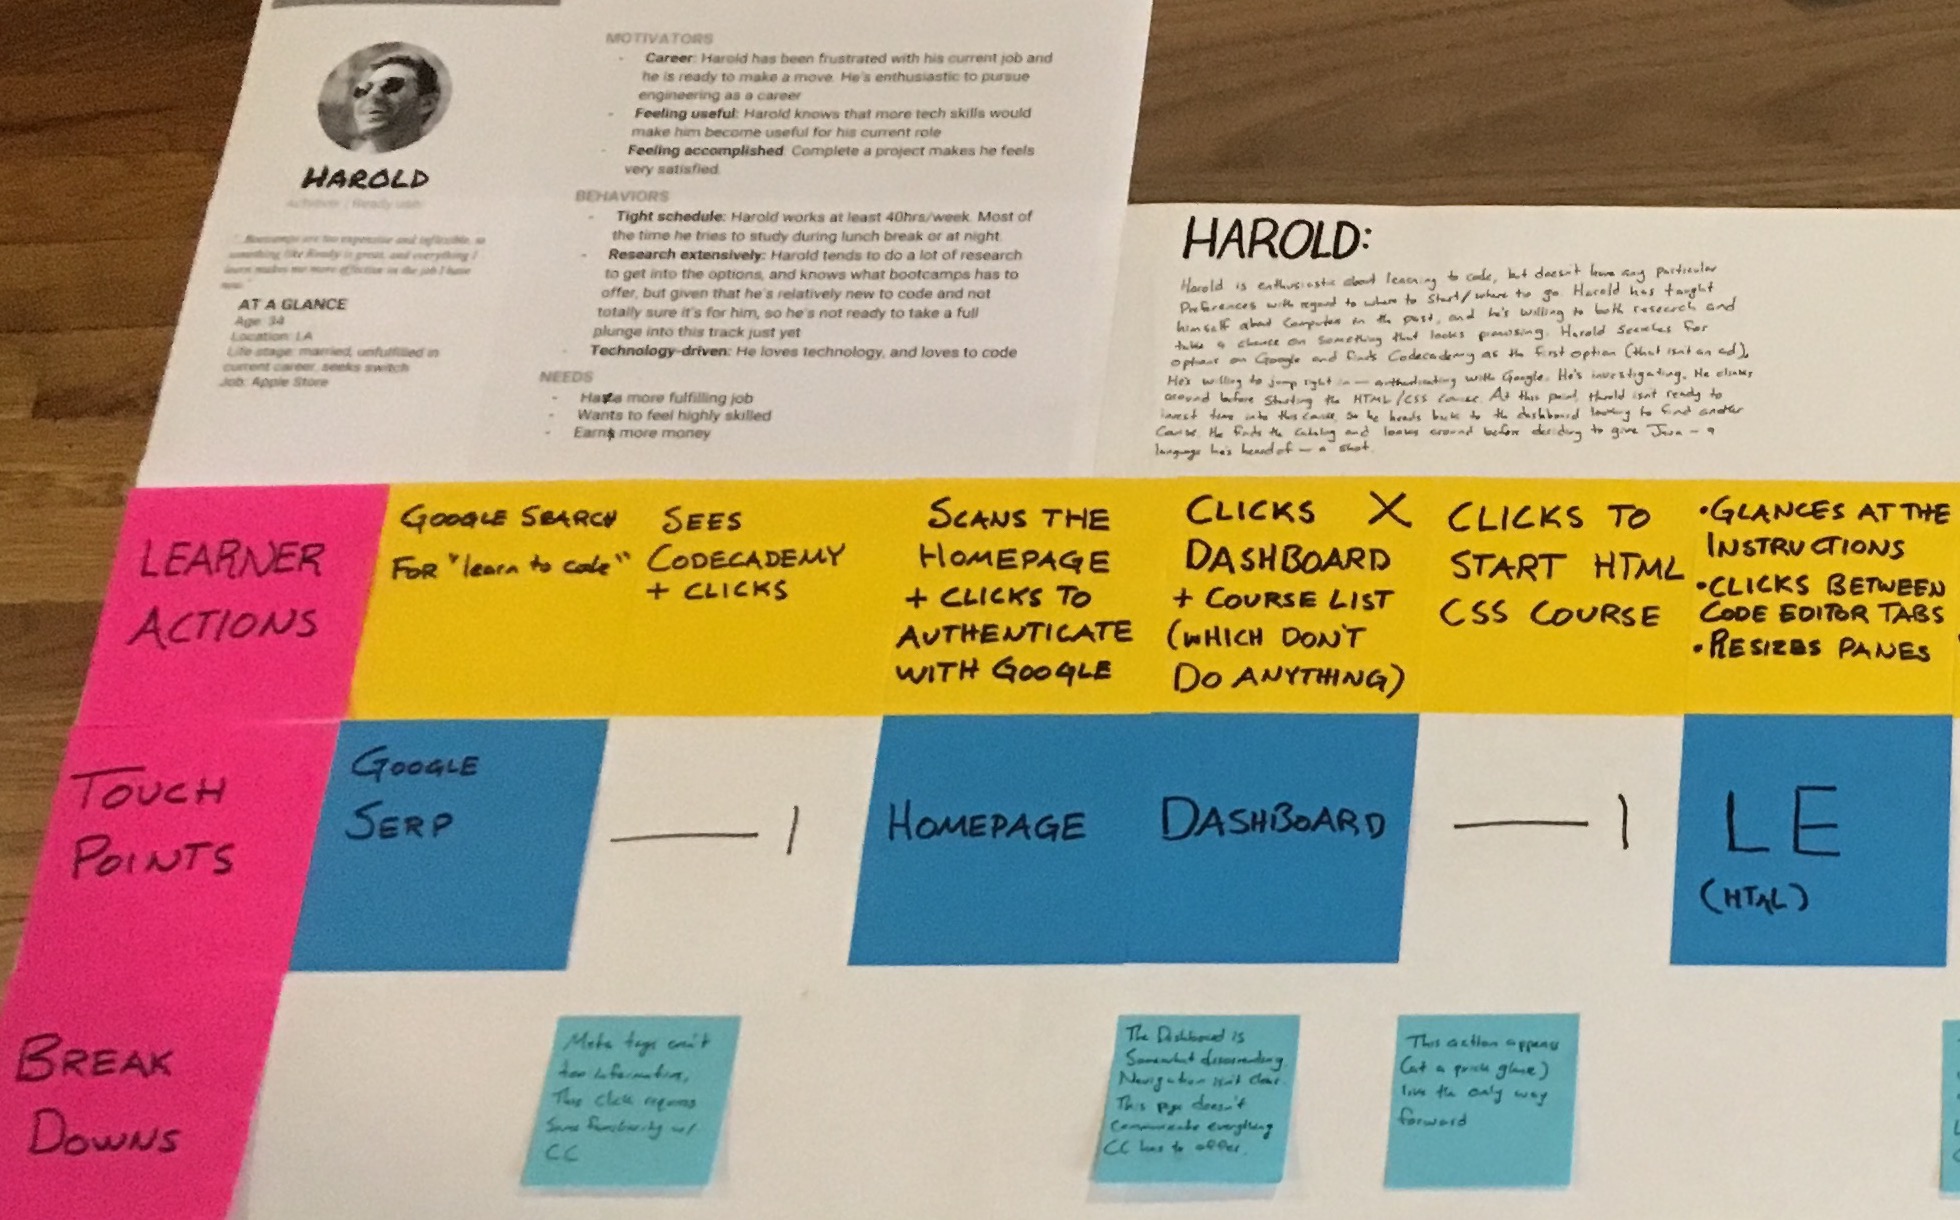 HAROLD
AT A GLANCE
Age: 34
Location: LA
Life stage: married, unfulfilled in
current career, seeks switch
Job: Apple Store
MOTIVATORS
- Career: Harold has been frustrated with his current job and
he is ready to make a move. He's enthusiastic to pursue
engineering as a career
- Feeling useful: Harold knows that more tech skills would
make him become useful for his current role
- Feeling accomplished: Complete a project makes he feels
very satisfied.
BEHAVIORS
- Tight schedule: Harold works at least 40hrs/week. Most of
the time he tries to study during lunch break or at night.
- Research extensively: Harold tends to do a lot of research
to get into the options, and knows what bootcamps has to
offer, but given that he's relatively new to code and not
totally sure it's for him, so he's not ready to take a full
plunge into this track just yet
- Technology-driven: He loves technology, and loves to code
NEEDS
- Has a more fulfilling job
- Wants to feel highly skilled
- Earns more money
HAROLD:
Harold is enthusiastic about learning to code, but doesn't have any particular
Preferences with regard to where to start/where to go. Harold has taught
himself about Computers in the past, and he's willing to both research and
take a chance on something that looks promising. Harold Searches for
options on Google and finds Codecademy as the first option (that isn't an ad).
He's willing to jump right in — authenticating with Google. He's investigating. He clicks
around before starting the HTML/CSS course. At this point, Harold isn't ready to
invest time into this course, so he heads back to the dashboard looking to find another
Course. He finds the Catalog and looks around before deciding to give Java — a
language he's heard of — a shot.
LEARNER
ACTIONS
GOOGLE SEARCH
FOR "learn to code"
SEES
CODECADEMY
+ CLICKS
SCANS THE
HOMEPAGE
+ CLICKS TO
AUTHENTICATE
WITH GOOGLE
CLICKS X
DASHBOARD
+ COURSE LIST
(WHICH DON'T
DO ANYTHING)
CLICKS TO
START HTML
CSS COURSE
• GLANCES AT THE
INSTRUCTIONS
• CLICKS BETWEEN
CODE EDITOR TABS
• RESIZES PANES
TOUCH
POINTS
GOOGLE
SERP
HOMEPAGE
DASHBOARD
LE
(HTML)
BREAK
DOWNS
Meta tags aren't
too informative.
This click requires
Some familiarity w/
CC
The Dashboard is
Somewhat
Navigation isn't clear.
This page doesn't
Communicate everything
CC has to offer.
This action appears
(at a quick glance)
like the only way
forward